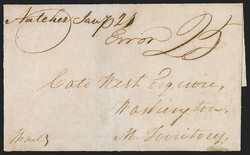 Natchez Jany 21
Error 25
Cato West Esquire,
Washington
M. Territory,